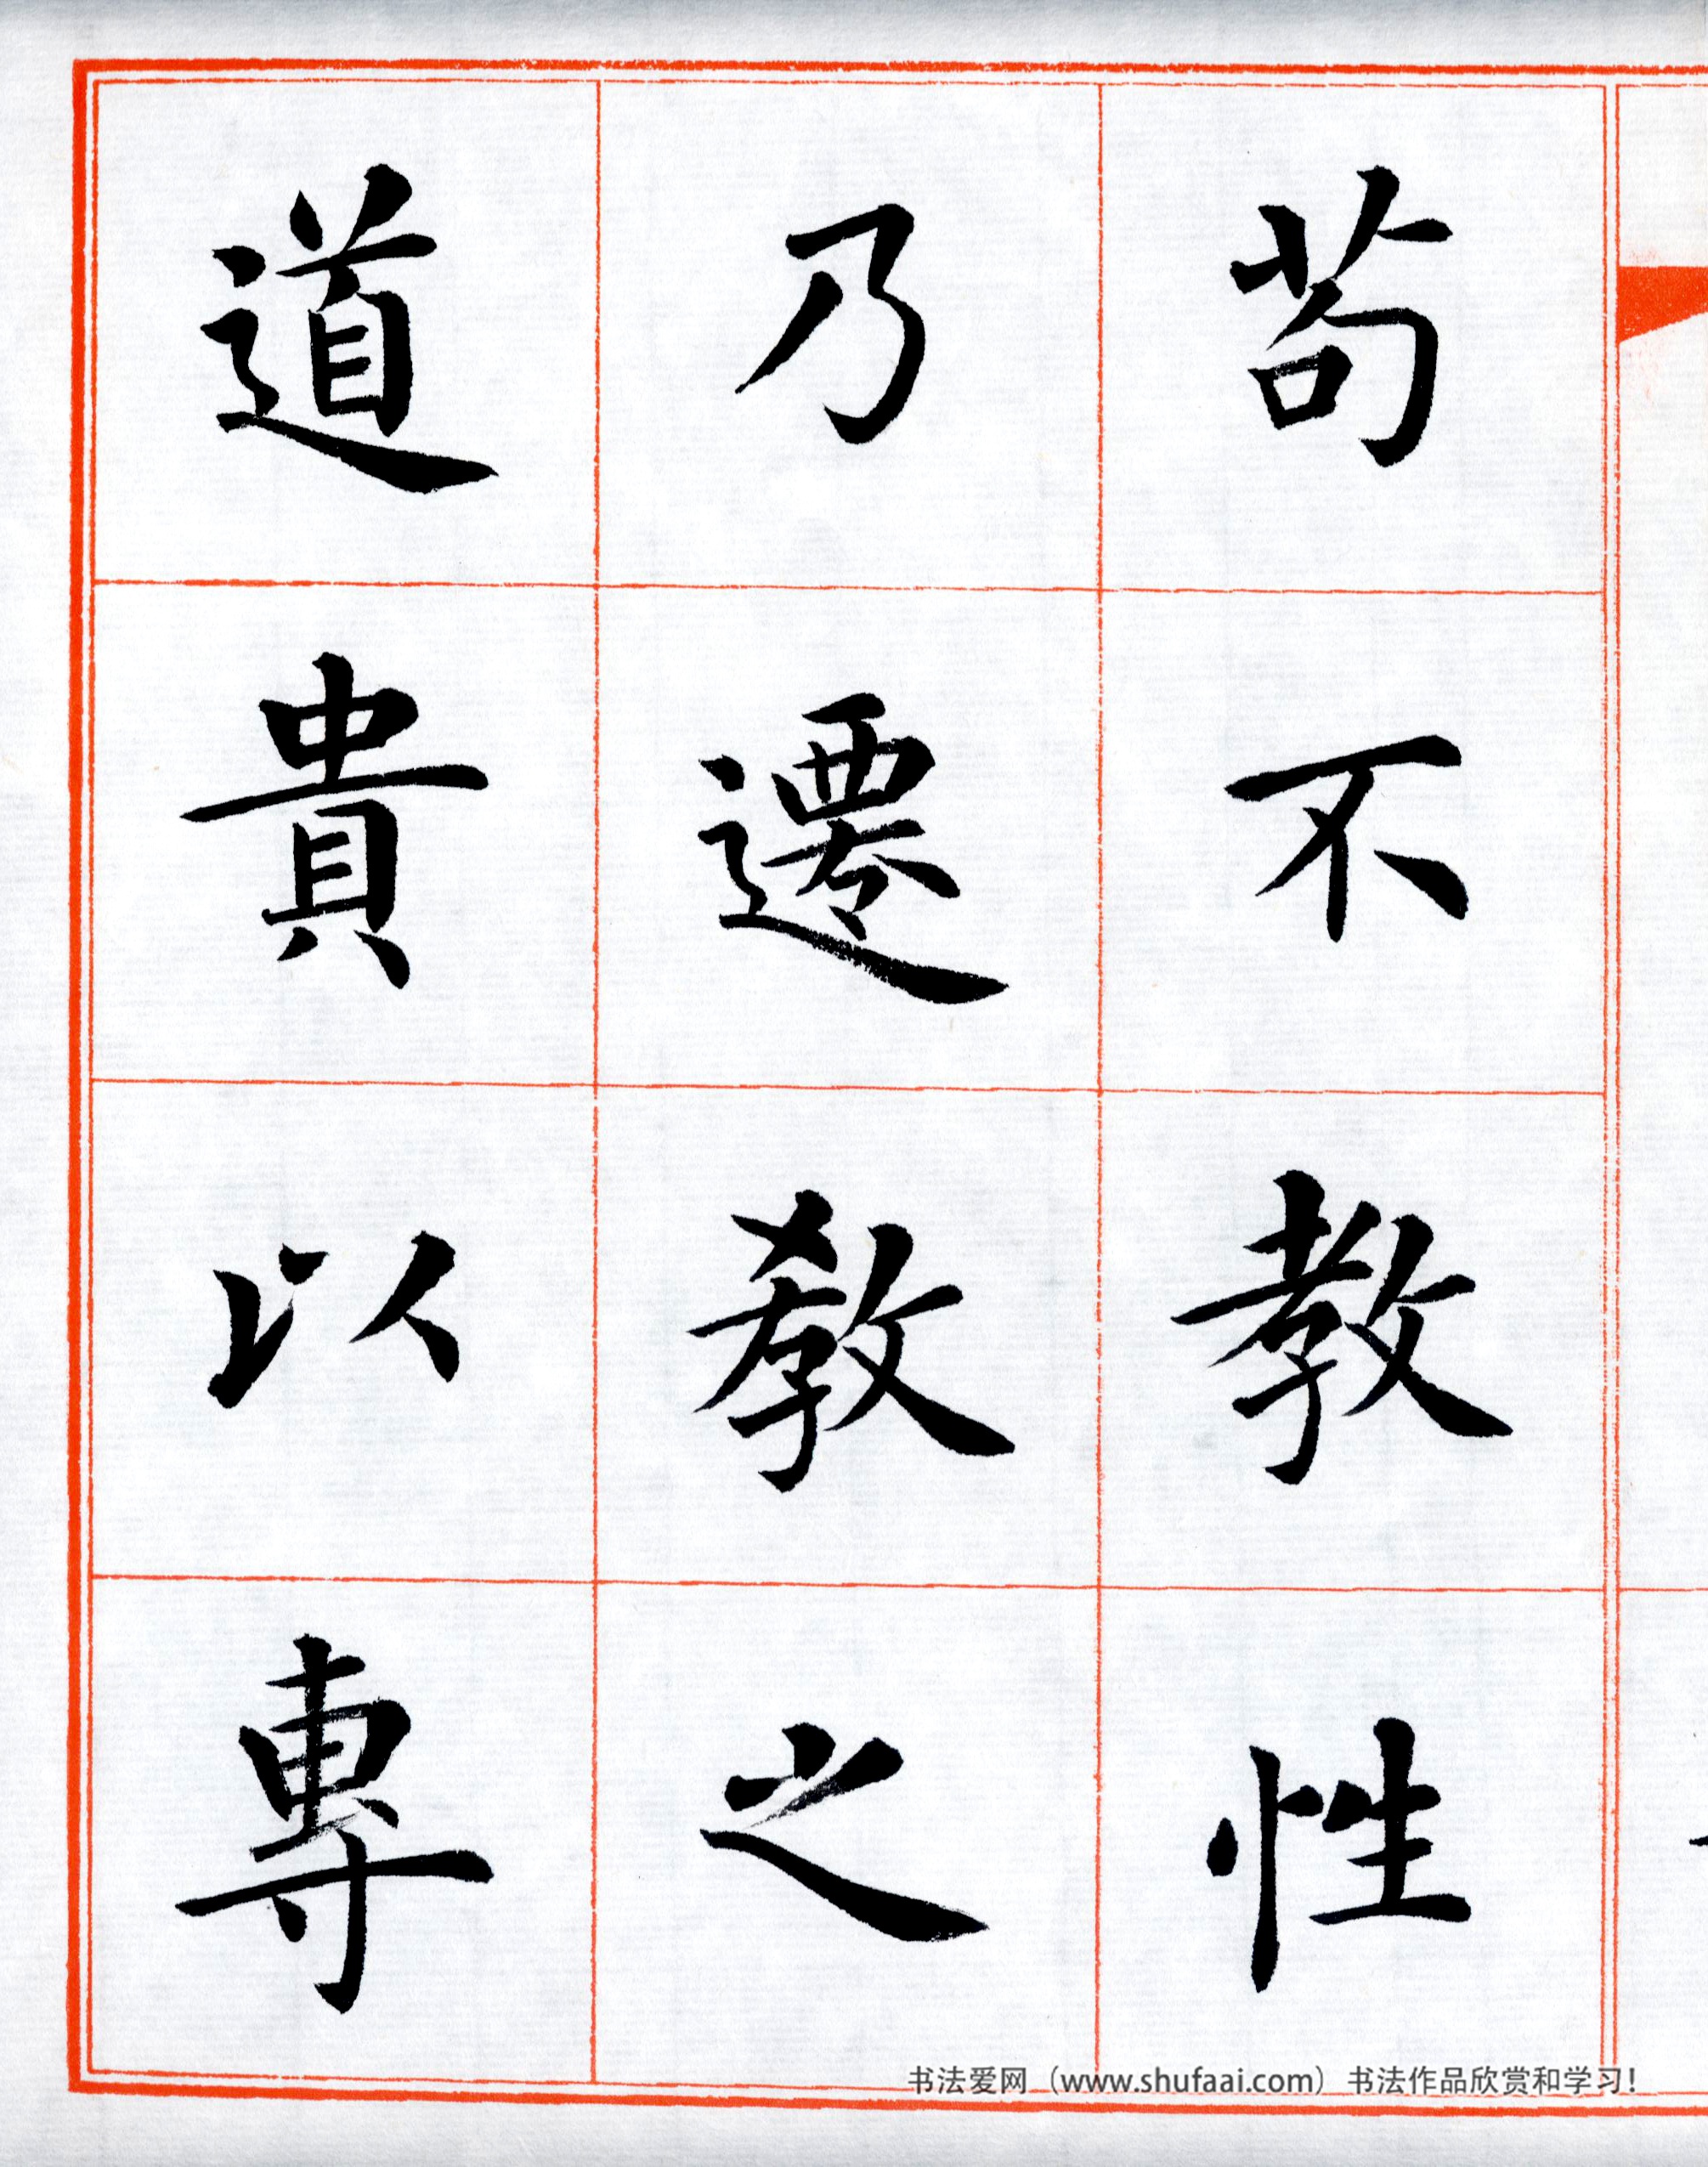 苟不教性
乃遷教之
道貴以專
书法爱网（www.shufaai.com）书法作品欣赏和学习！